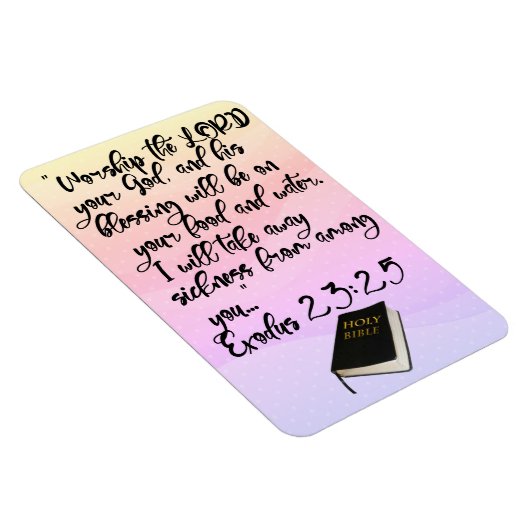 " Worship the LORD
your God, and his
blessing will be on
your food and water.
I will take away
sickness from among
you..."
Exodus 23:25
HOLY
BIBLE